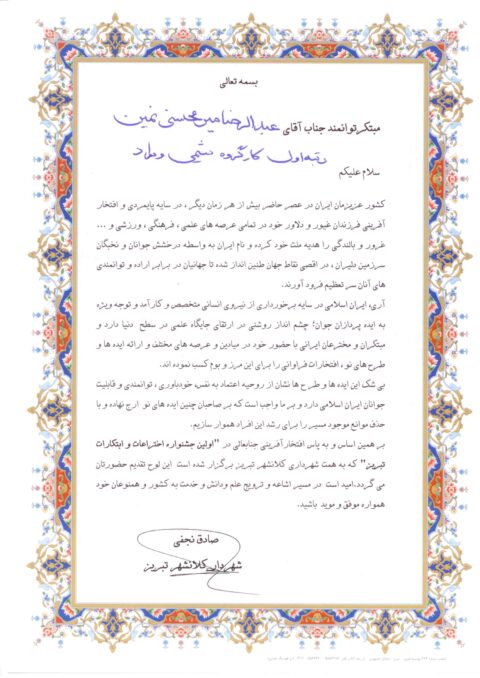 بسمه تعالی
مبتکر توانمند جناب آقای عبدالرضا امین محسنی نمین
رتبه اول کارگروه شیمی و مواد
سلام علیکم
کشور عزیزمان ایران در عصر حاضر بیش از هر زمان دیگر، در سایه پایمردی و افتخار
آفرینی فرزندان غیور و دلاور خود در تمامی عرصه های علمی، فرهنگی، ورزشی و ...
غرور و بالندگی را هدیه ملت خود کرده و نام ایران به واسطه درخشش جوانان و نخبگان
سرزمین دلیران، در اقصی نقاط جهان طنین انداز شده تا جهانیان در برابر اراده و توانمندی
های آنان سر تعظیم فرود آورند.
آری، ایران اسلامی در سایه برخورداری از نیروی انسانی متخصص و کارآمد و توجه ویژه
به ایده پردازان جوان؛ چشم انداز روشنی در ارتقای جایگاه علمی در سطح دنیا دارد و
مبتکران و مخترعان ایرانی با حضور خود در میادین و عرصه های مختلف و ارائه ایده ها و
طرح های نو، افتخارات فراوانی را برای این مرز و بوم کسب نموده اند.
بی شک این ایده ها و طرح ها نشان از روحیه اعتماد به نفس، خودباوری، توانمندی و قابلیت
جوانان ایران اسلامی دارد و بر ما واجب است که بر صاحبان چنین ایده های نو ارج نهاده و با
حذف موانع موجود مسیر را برای رشد این افراد هموار سازیم.
بر همین اساس و به پاس افتخارآفرینی جنابعالی در "اولین جشنواره اختراعات و ابتکارات
تبریز" که به همت شهرداری کلانشهر تبریز برگزار شده است این لوح تقدیم حضورتان
می گردد. امید است در مسیر اشاعه و ترویج علم ودانش و خدمت به کشور و همنوعان خود
همواره موفق و موید باشید.
صادق نجفی
شهردار کلانشهر تبریز